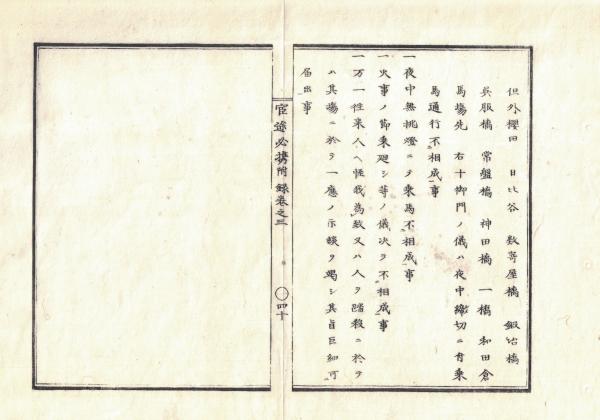 但外櫻田 日比谷 数寄屋橋 鍛冶橋
呉服橋 常盤橋 神田橋 一橋 和田倉
馬場先 右十御門ノ儀ハ夜中締切ニ付乗
馬通行不相成事
一夜中無挑燈ニテ乗馬不相成事
一火事ノ節乗廻シ等ノ儀決テ不相成事
一万一往来人ヘ怪我為致又ハ人ヲ踏殺ニ於テ
ハ其場ニ於テ一應ノ示談ヲ竭シ其旨巨細可
届出事
官途必携附録巻之三
〇四十